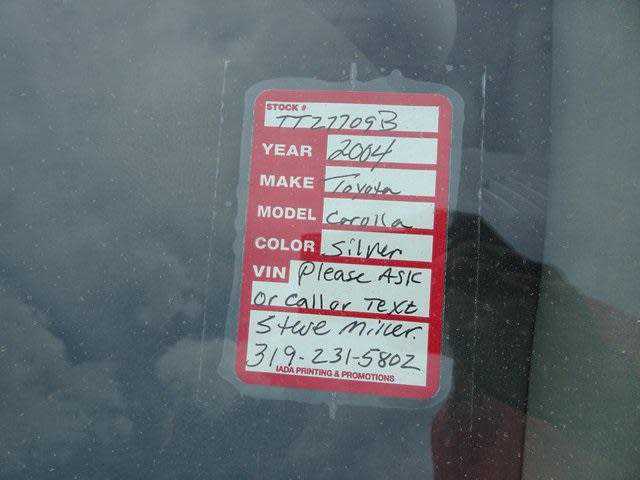 STOCK #
TT27709B
YEAR 2004
MAKE Toyota
MODEL Corolla
COLOR Silver
VIN Please Ask
or call or Text
Steve Miller.
319-231-5802
IADA PRINTING & PROMOTIONS